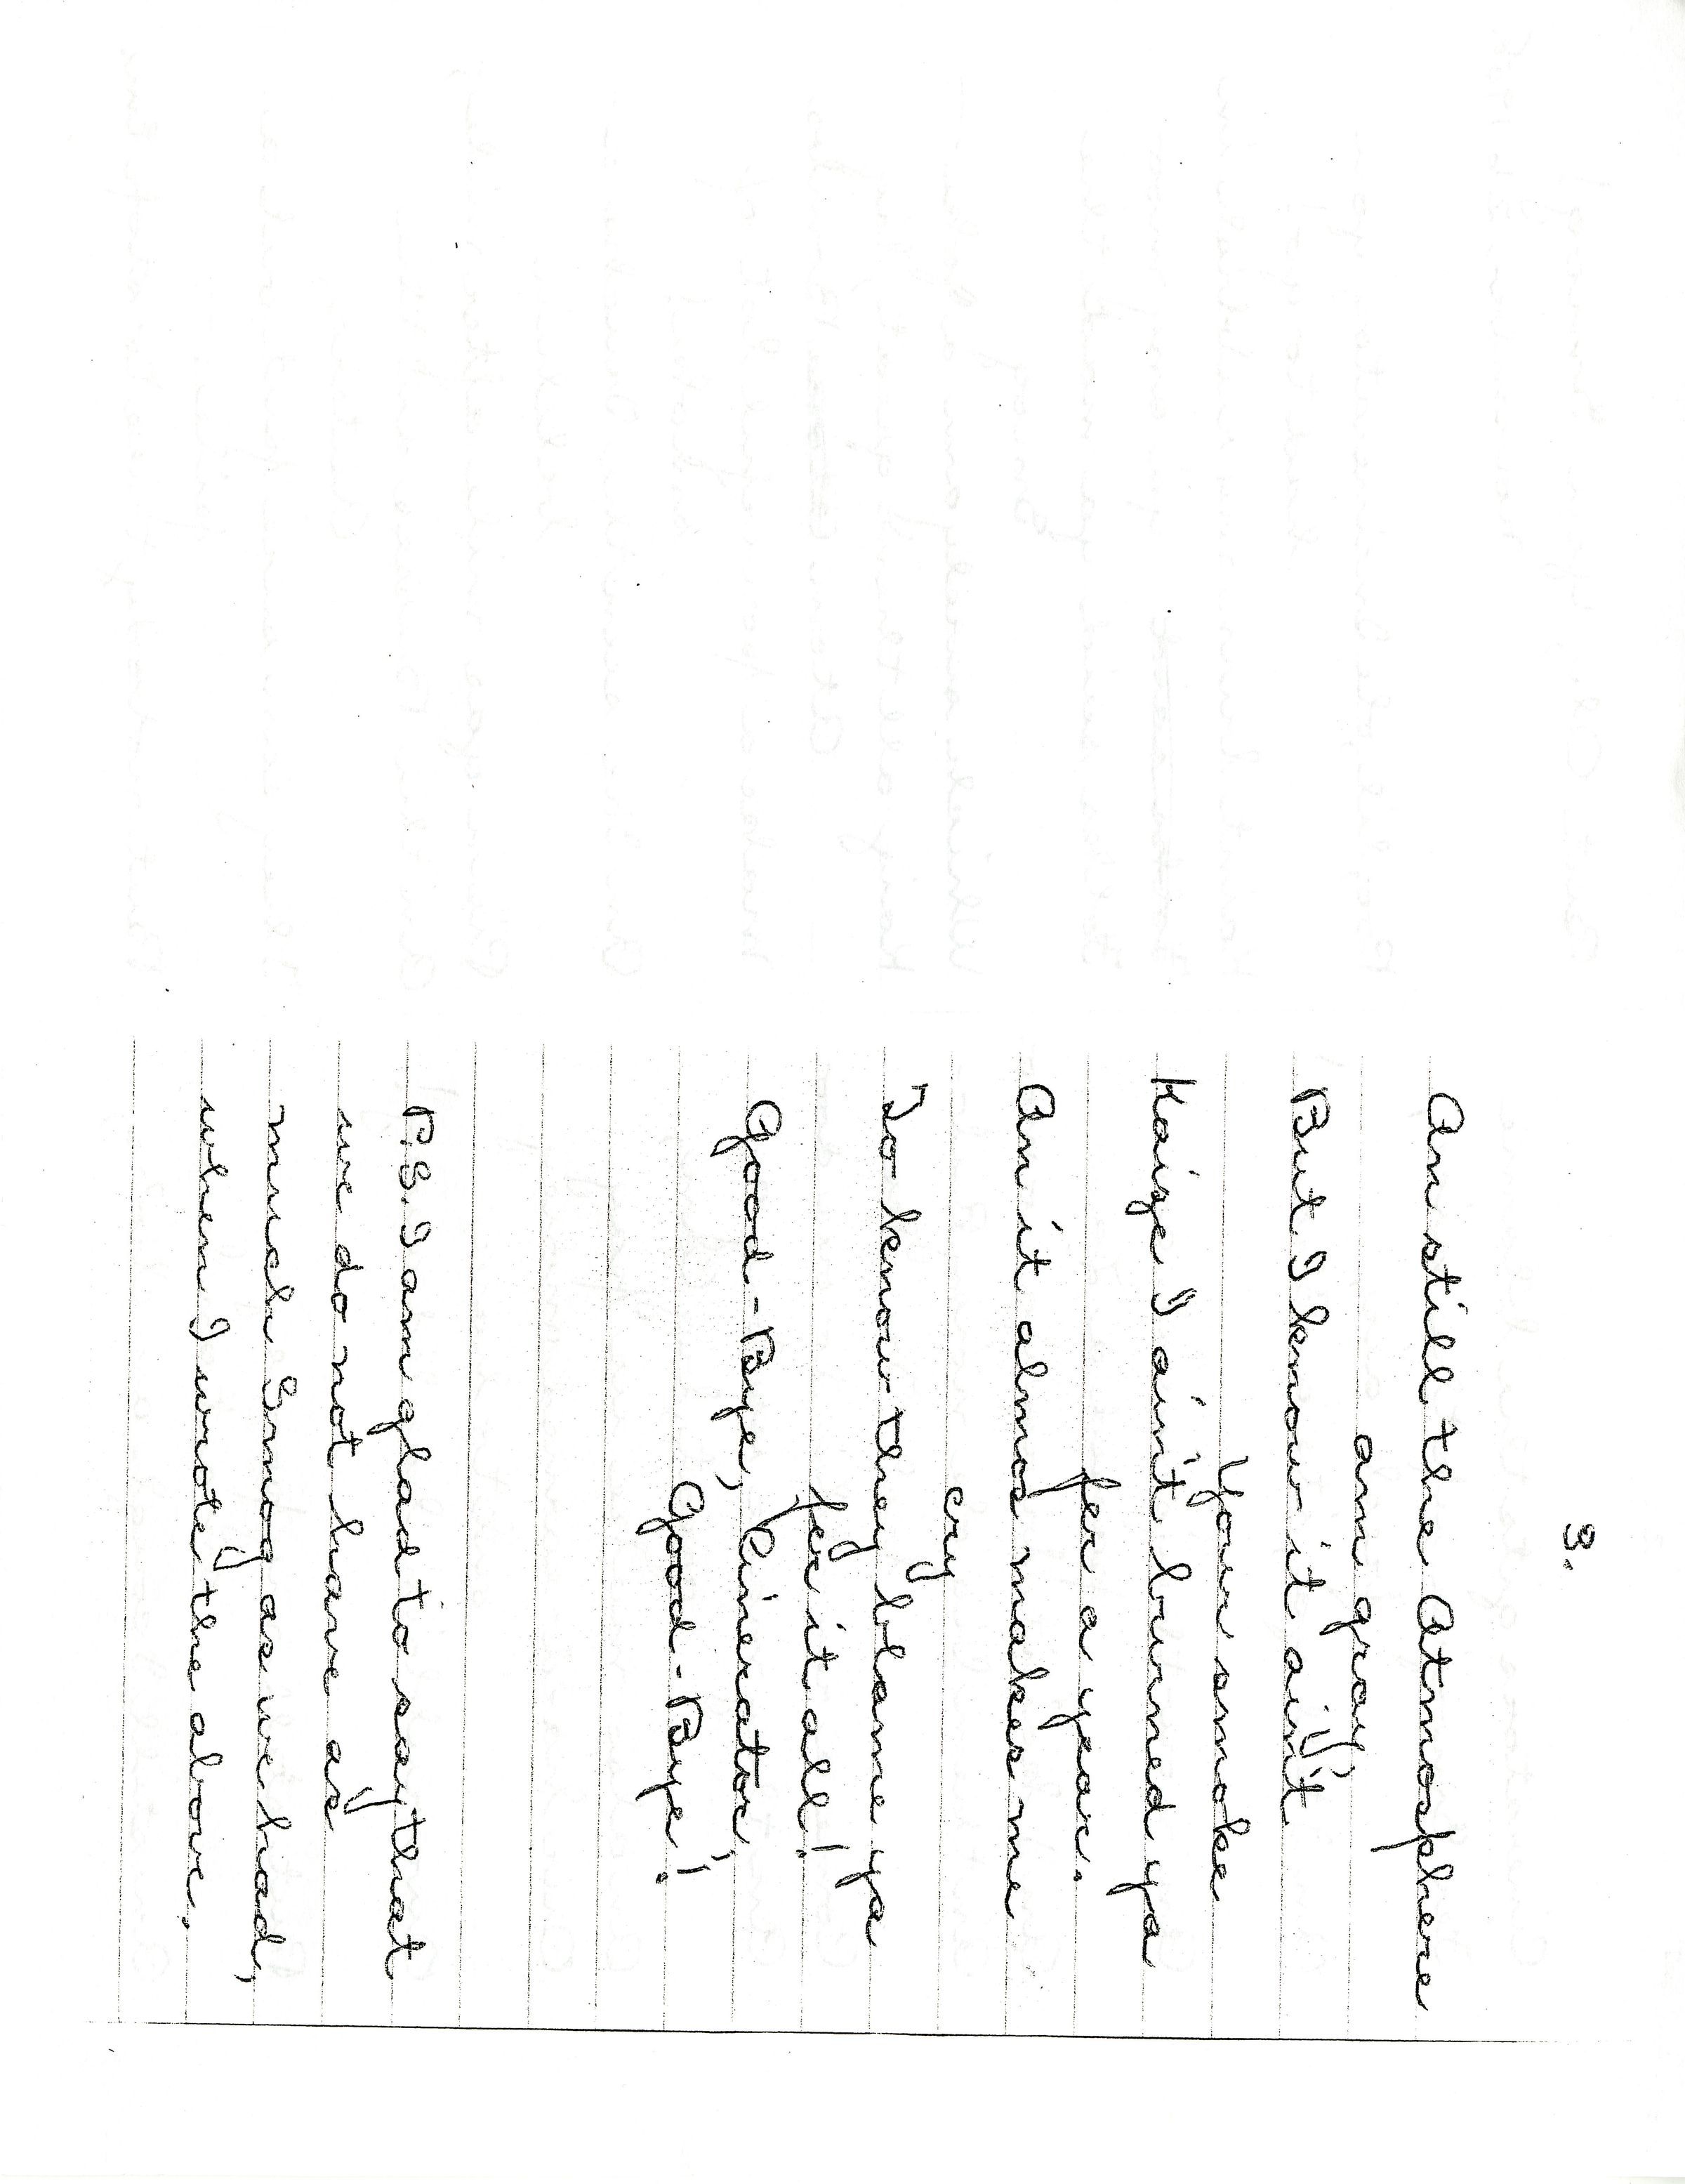 3.
An still the Atmosphere
am gray,
But I know it ain't
Your smoke
Kaize I ain't burned ya
fer a year.
An it almos makes me
cry
To know they blame ya
fer it all!
Good-Bye, Cinerator,
Good-Bye!
P.S. I am glad to say that
we do not have as
much Smog as we had,
when I wrote the above.